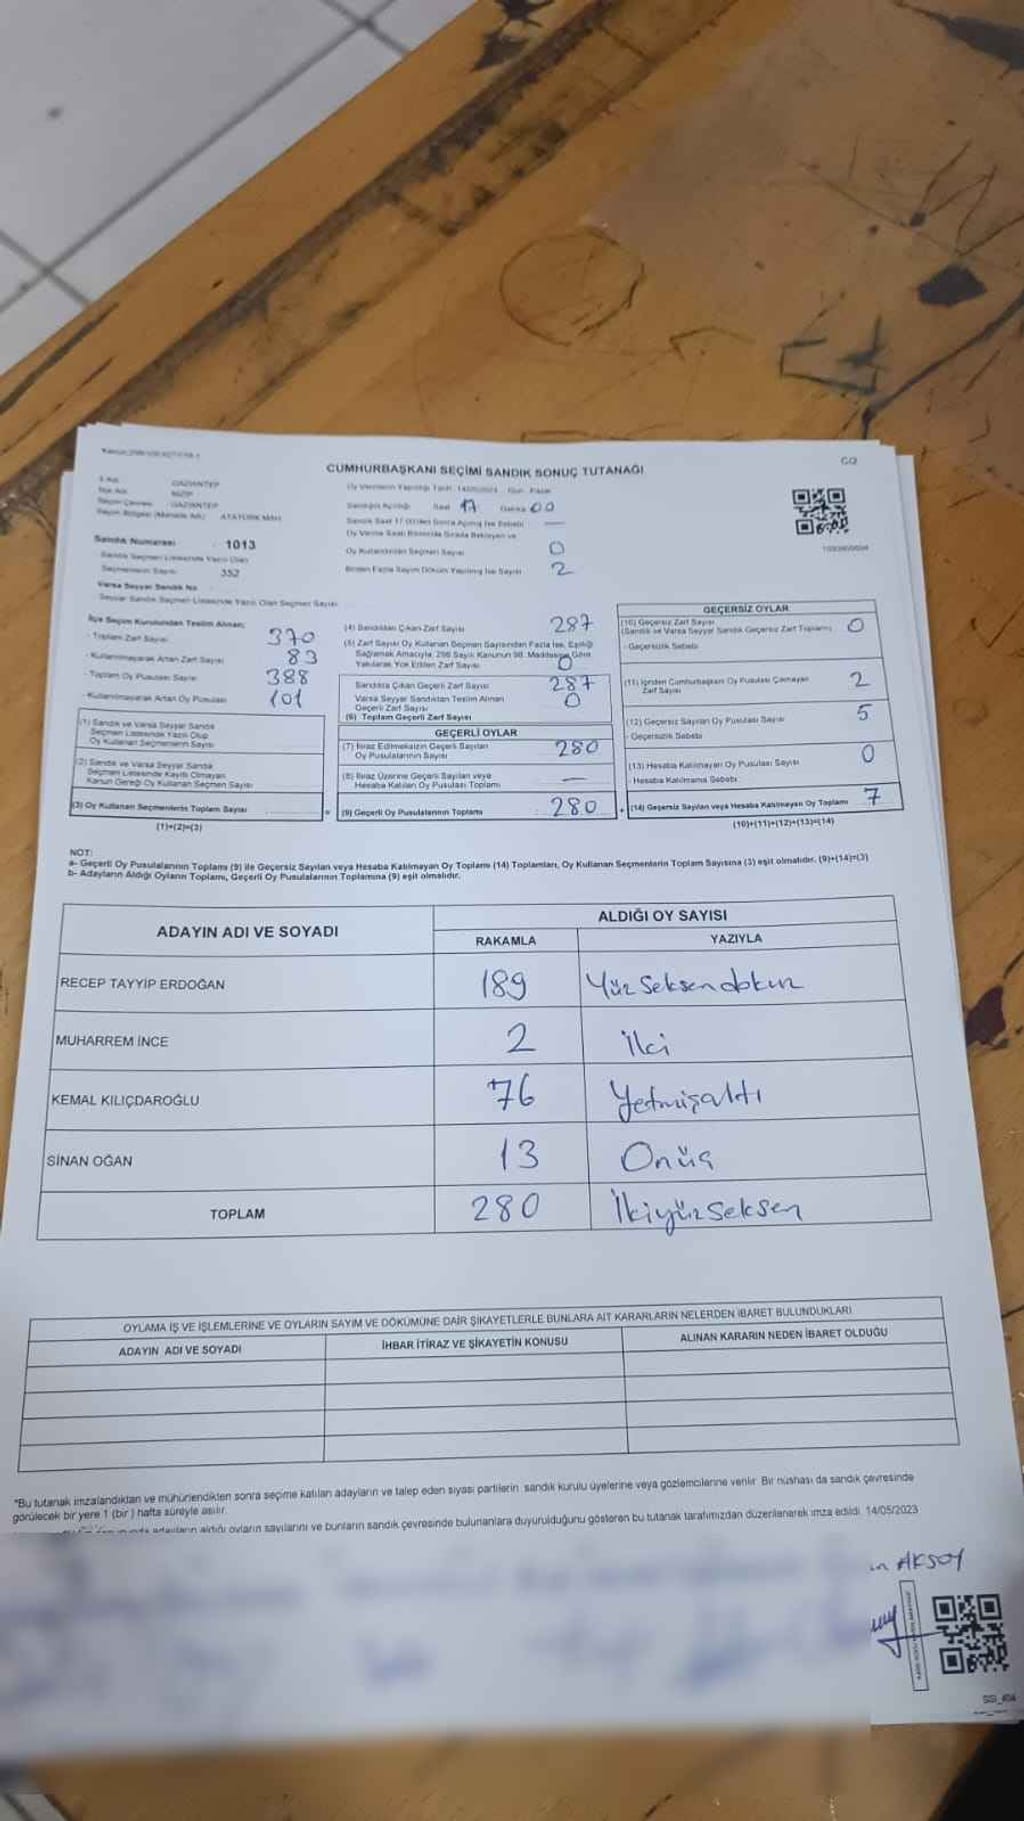 CUMHURBAŞKANI SEÇİMİ SANDIK SONUÇ TUTANAĞI
GAZİANTEP
NİZİP
GAZİANTEP
ATATÜRK MAH.
Sandık Numarası 1013
352
Sandığın Açıldığı Saat 17 Dakika 00
Oy Kullandırılan Seçmen Sayısı 0
Birden Fazla Sayım Döküm Yapılmış İse Sayısı 2
İlçe Seçim Kurulundan Teslim Alınan;
- Toplam Zarf Sayısı 370
- Kullanılmayarak Artan Zarf Sayısı 83
- Toplam Oy Pusulası Sayısı 388
- Kullanılmayarak Artan Oy Pusulası 101
(1) Sandık ve Varsa Seyyar Sandık
Seçmen Listesinde Yazılı Olup
Oy Kullanan Seçmenlerin Sayısı
(2) Sandık ve Varsa Seyyar Sandık
Seçmen Listesinde Kayıtlı Olmayan
Kanun Gereği Oy Kullanan Seçmen Sayısı
(3) Oy Kullanan Seçmenlerin Toplam Sayısı
(1)+(2)=(3)
(4) Sandıktan Çıkan Zarf Sayısı 287
(5) Zarf Sayısı Oy Kullanan Seçmen Sayısından Fazla İse, Eşitliği
Sağlamak Amacıyla, 298 Sayılı Kanunun 98. Maddesine Göre
Yakılarak Yok Edilen Zarf Sayısı 0
Sandıkta Çıkan Geçerli Zarf Sayısı 287
Varsa Seyyar Sandıktan Teslim Alınan
Geçerli Zarf Sayısı 0
(6) Toplam Geçerli Zarf Sayısı
GEÇERLİ OYLAR
(7) İtiraz Edilmeksizin Geçerli Sayılan
Oy Pusulalarının Sayısı 280
(8) İtiraz Üzerine Geçerli Sayılan veya
Hesaba Katılan Oy Pusulası Toplamı —
(9) Geçerli Oy Pusulalarının Toplamı 280
GEÇERSİZ OYLAR
(10) Geçersiz Zarf Sayısı 0
(Sandık ve Varsa Seyyar Sandık Geçersiz Zarf Toplamı)
- Geçersizlik Sebebi
(11) İçinden Cumhurbaşkanı Oy Pusulası Çıkmayan
Zarf Sayısı 2
(12) Geçersiz Sayılan Oy Pusulası Sayısı 5
- Geçersizlik Sebebi
(13) Hesaba Katılmayan Oy Pusulası Sayısı 0
- Hesaba Katılmama Sebebi
(14) Geçersiz Sayılan veya Hesaba Katılmayan Oy Toplamı 7
(10)+(11)+(12)+(13)=(14)
NOT:
a- Geçerli Oy Pusulalarının Toplamı (9) ile Geçersiz Sayılan veya Hesaba Katılmayan Oy Toplamı (14) Toplamları, Oy Kullanan Seçmenlerin Toplam Sayısına (3) eşit olmalıdır. (9)+(14)=(3)
b- Adayların Aldığı Oyların Toplamı, Geçerli Oy Pusulalarının Toplamına (9) eşit olmalıdır.
ADAYIN ADI VE SOYADI
ALDIĞI OY SAYISI
RAKAMLA YAZIYLA
RECEP TAYYİP ERDOĞAN 189 Yüz Seksendokuz
MUHARREM İNCE 2 İki
KEMAL KILIÇDAROĞLU 76 Yetmişaltı
SİNAN OĞAN 13 Onüç
TOPLAM 280 İkiyüzseksen
OYLAMA İŞ VE İŞLEMLERİNE VE OYLARIN SAYIM VE DÖKÜMÜNE DAİR ŞİKAYETLERLE BUNLARA AİT KARARLARIN NELERDEN İBARET BULUNDUKLARI
ADAYIN ADI VE SOYADI İHBAR İTİRAZ VE ŞİKAYETİN KONUSU ALINAN KARARIN NEDEN İBARET OLDUĞU
*Bu tutanak imzalandıktan ve mühürlendikten sonra seçime katılan adayların ve talep eden siyasi partilerin sandık kurulu üyelerine veya gözlemcilerine verilir. Bir nüshası da sandık çevresinde
görülecek bir yere 1 (bir) hafta süreyle asılır.
adayların aldığı oyların sayılarını ve bunların sandık çevresinde bulunanlara duyurulduğunu gösteren bu tutanak tarafımızdan düzenlenerek imza edildi. 14/05/2023
AKSOY